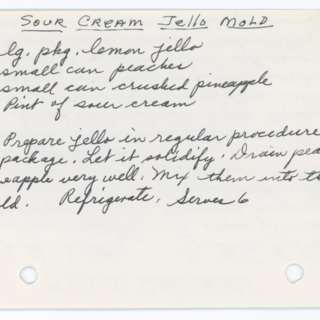 SOUR CREAM JELLO MOLD
lg. pkg. lemon jello
small can peaches
small can crushed pineapple
Pint of sour cream
Prepare jello in regular procedure
package. Let it solidify. Drain pea
eapple very well. Mix them into th
ld. Refrigerate. Serves 6